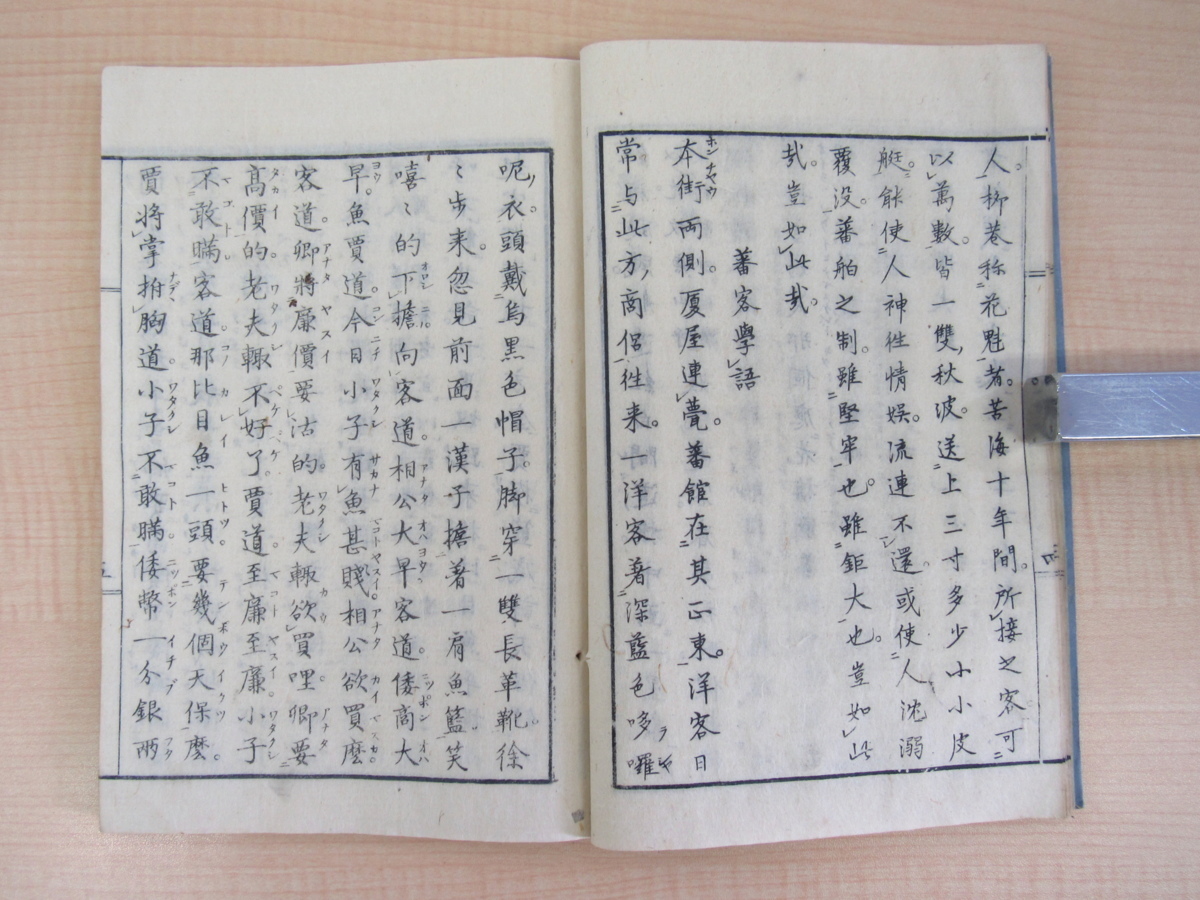 人。柳巷称花魁者。苦海十年間。所接之客可
以萬數。皆一雙秋波。送上三寸多少小小皮
艇。能使人神往情娯。流連不還。或使人沈溺
覆没。蕃舶之制。雖堅牢也。雖鉅大也。豈如此
哉。豈如此哉。
蕃客學語
本街両側。厦屋連甍。蕃館在其正東。洋客日
常与此方商侶往来。一洋客著深藍色哆囉
呢衣。頭戴烏黒色帽子。脚穿一雙長革靴。徐
〻歩来。忽見前面一漢子擔着一肩魚籃。笑
嘻〻的下擔向客道。相公大早。客道。倭商大
早。魚賈道。今日小子有魚甚賤。相公欲買麼。
客道。卿將廉價要沽的。老夫輙欲買哩。卿要
高價的。老夫輙不好了。賈道。至廉至廉。小子
不敢瞞。客道。那比目魚一頭。要幾個天保麼。
賈將掌拍胸道。小子不敢瞞。倭幣一分銀両
四
五